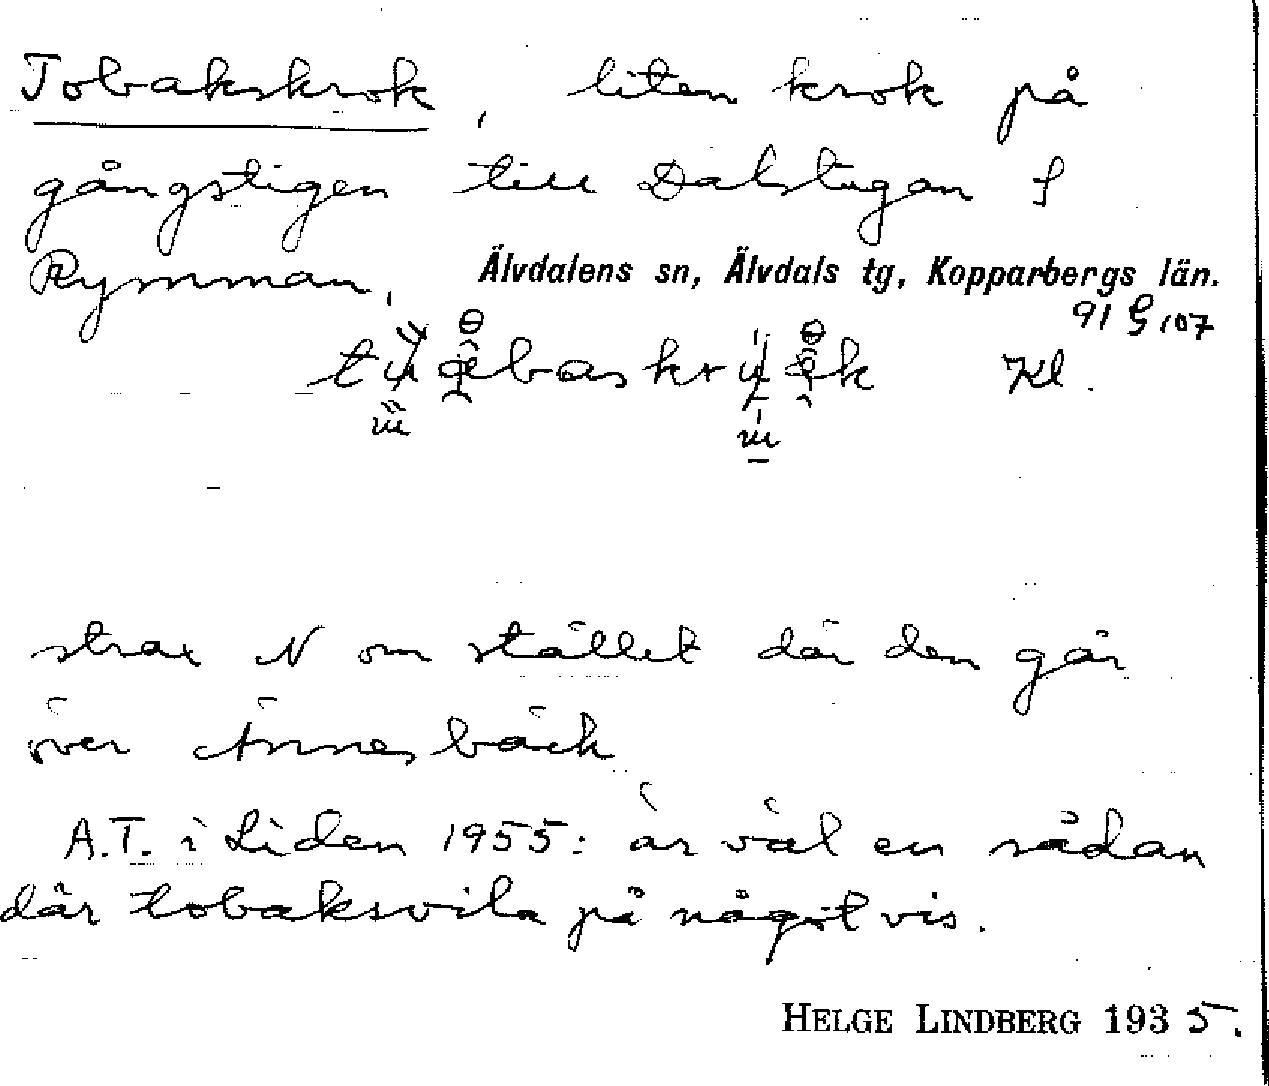 Tobakskrok, liten krok på
gångstigen till Dalstugan S
Rymman, Älvdalens sn, Älvdals tg, Kopparbergs län.
91 G 107
Kl.
strax N om stället där den går
över Ännesbäck
A.T. i Liden 1955: är väl en sådan
där tobaksvila på något vis.
HELGE LINDBERG 1935.